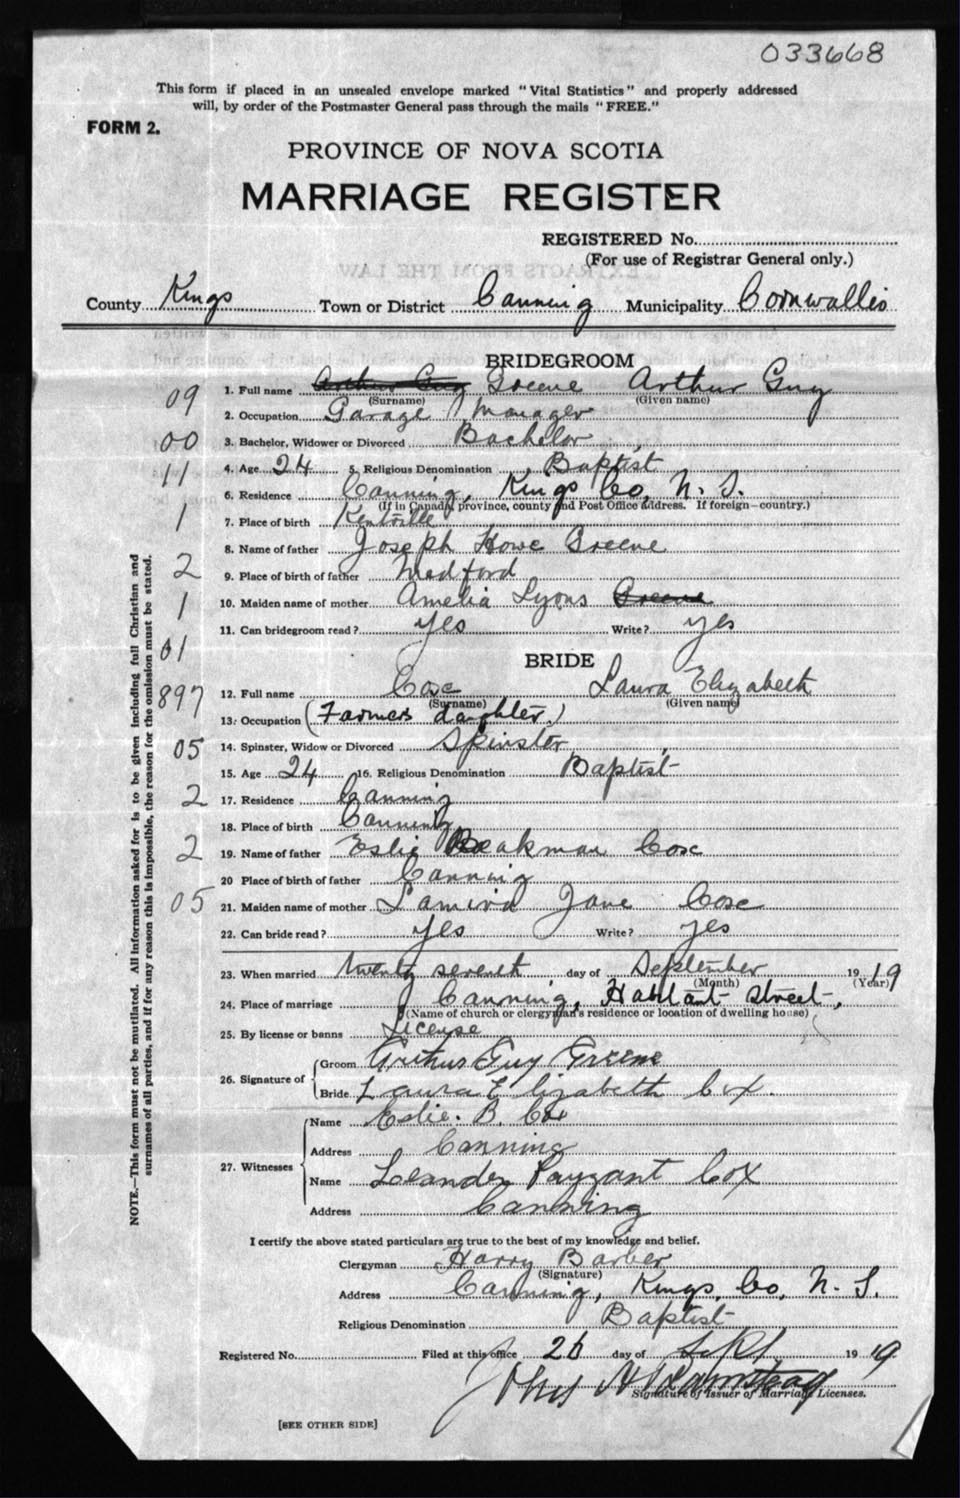 033668
This form if placed in an unsealed envelope marked "Vital Statistics" and properly addressed
will, by order of the Postmaster General pass through the mails "FREE."
FORM 2.
PROVINCE OF NOVA SCOTIA
MARRIAGE REGISTER
REGISTERED No.
(For use of Registrar General only.)
County Kings Town or District Canning Municipality Cornwallis
BRIDEGROOM
09 1. Full name Arthur Guy Greene Arthur Guy
(Surname) (Given name)
2. Occupation Garage Manager
00 3. Bachelor, Widower or Divorced Bachelor
11 4. Age 24 5. Religious Denomination Baptist
6. Residence Canning, Kings Co, N. S.
(If in Canada, province, county and Post Office address. If foreign—country.)
1 7. Place of birth Kentville
8. Name of father Joseph Howe Greene
2 9. Place of birth of father Medford
1 10. Maiden name of mother Amelia Lyons Greene
11. Can bridegroom read? yes Write? yes
01 BRIDE
897 12. Full name Coxe Laura Elizabeth
(Surname) (Given name)
13. Occupation (Farmers daughter.)
05 14. Spinster, Widow or Divorced Spinster
15. Age 24 16. Religious Denomination Baptist
2 17. Residence Canning
18. Place of birth Canning
2 19. Name of father Eslie Beakman Coxe
20 Place of birth of father Canning
05 21. Maiden name of mother Lamira Jane Coxe
22. Can bride read? yes Write? yes
23. When married twenty seventh day of September 1919
(Month) (Year)
24. Place of marriage Canning, Habitant Street,
(Name of church or clergyman's residence or location of dwelling house)
25. By license or banns License
26. Signature of Groom Arthur Guy Greene
Bride Laura Elizabeth Cox.
27. Witnesses Name Eslie. B. Cox
Address Canning
Name Leander Payzant Cox
Address Canning
I certify the above stated particulars are true to the best of my knowledge and belief.
Clergyman Harry Barber
(Signature)
Address Canning, Kings, Co, N. S.
Religious Denomination Baptist
Registered No. Filed at this office 26 day of Sept 1919
Signature of Issuer of Marriage Licenses.
[SEE OTHER SIDE]
NOTE.—This form must not be mutilated. All information asked for is to be given including full Christian and
surnames of all parties, and if for any reason this is impossible, the reason for the omission must be stated.